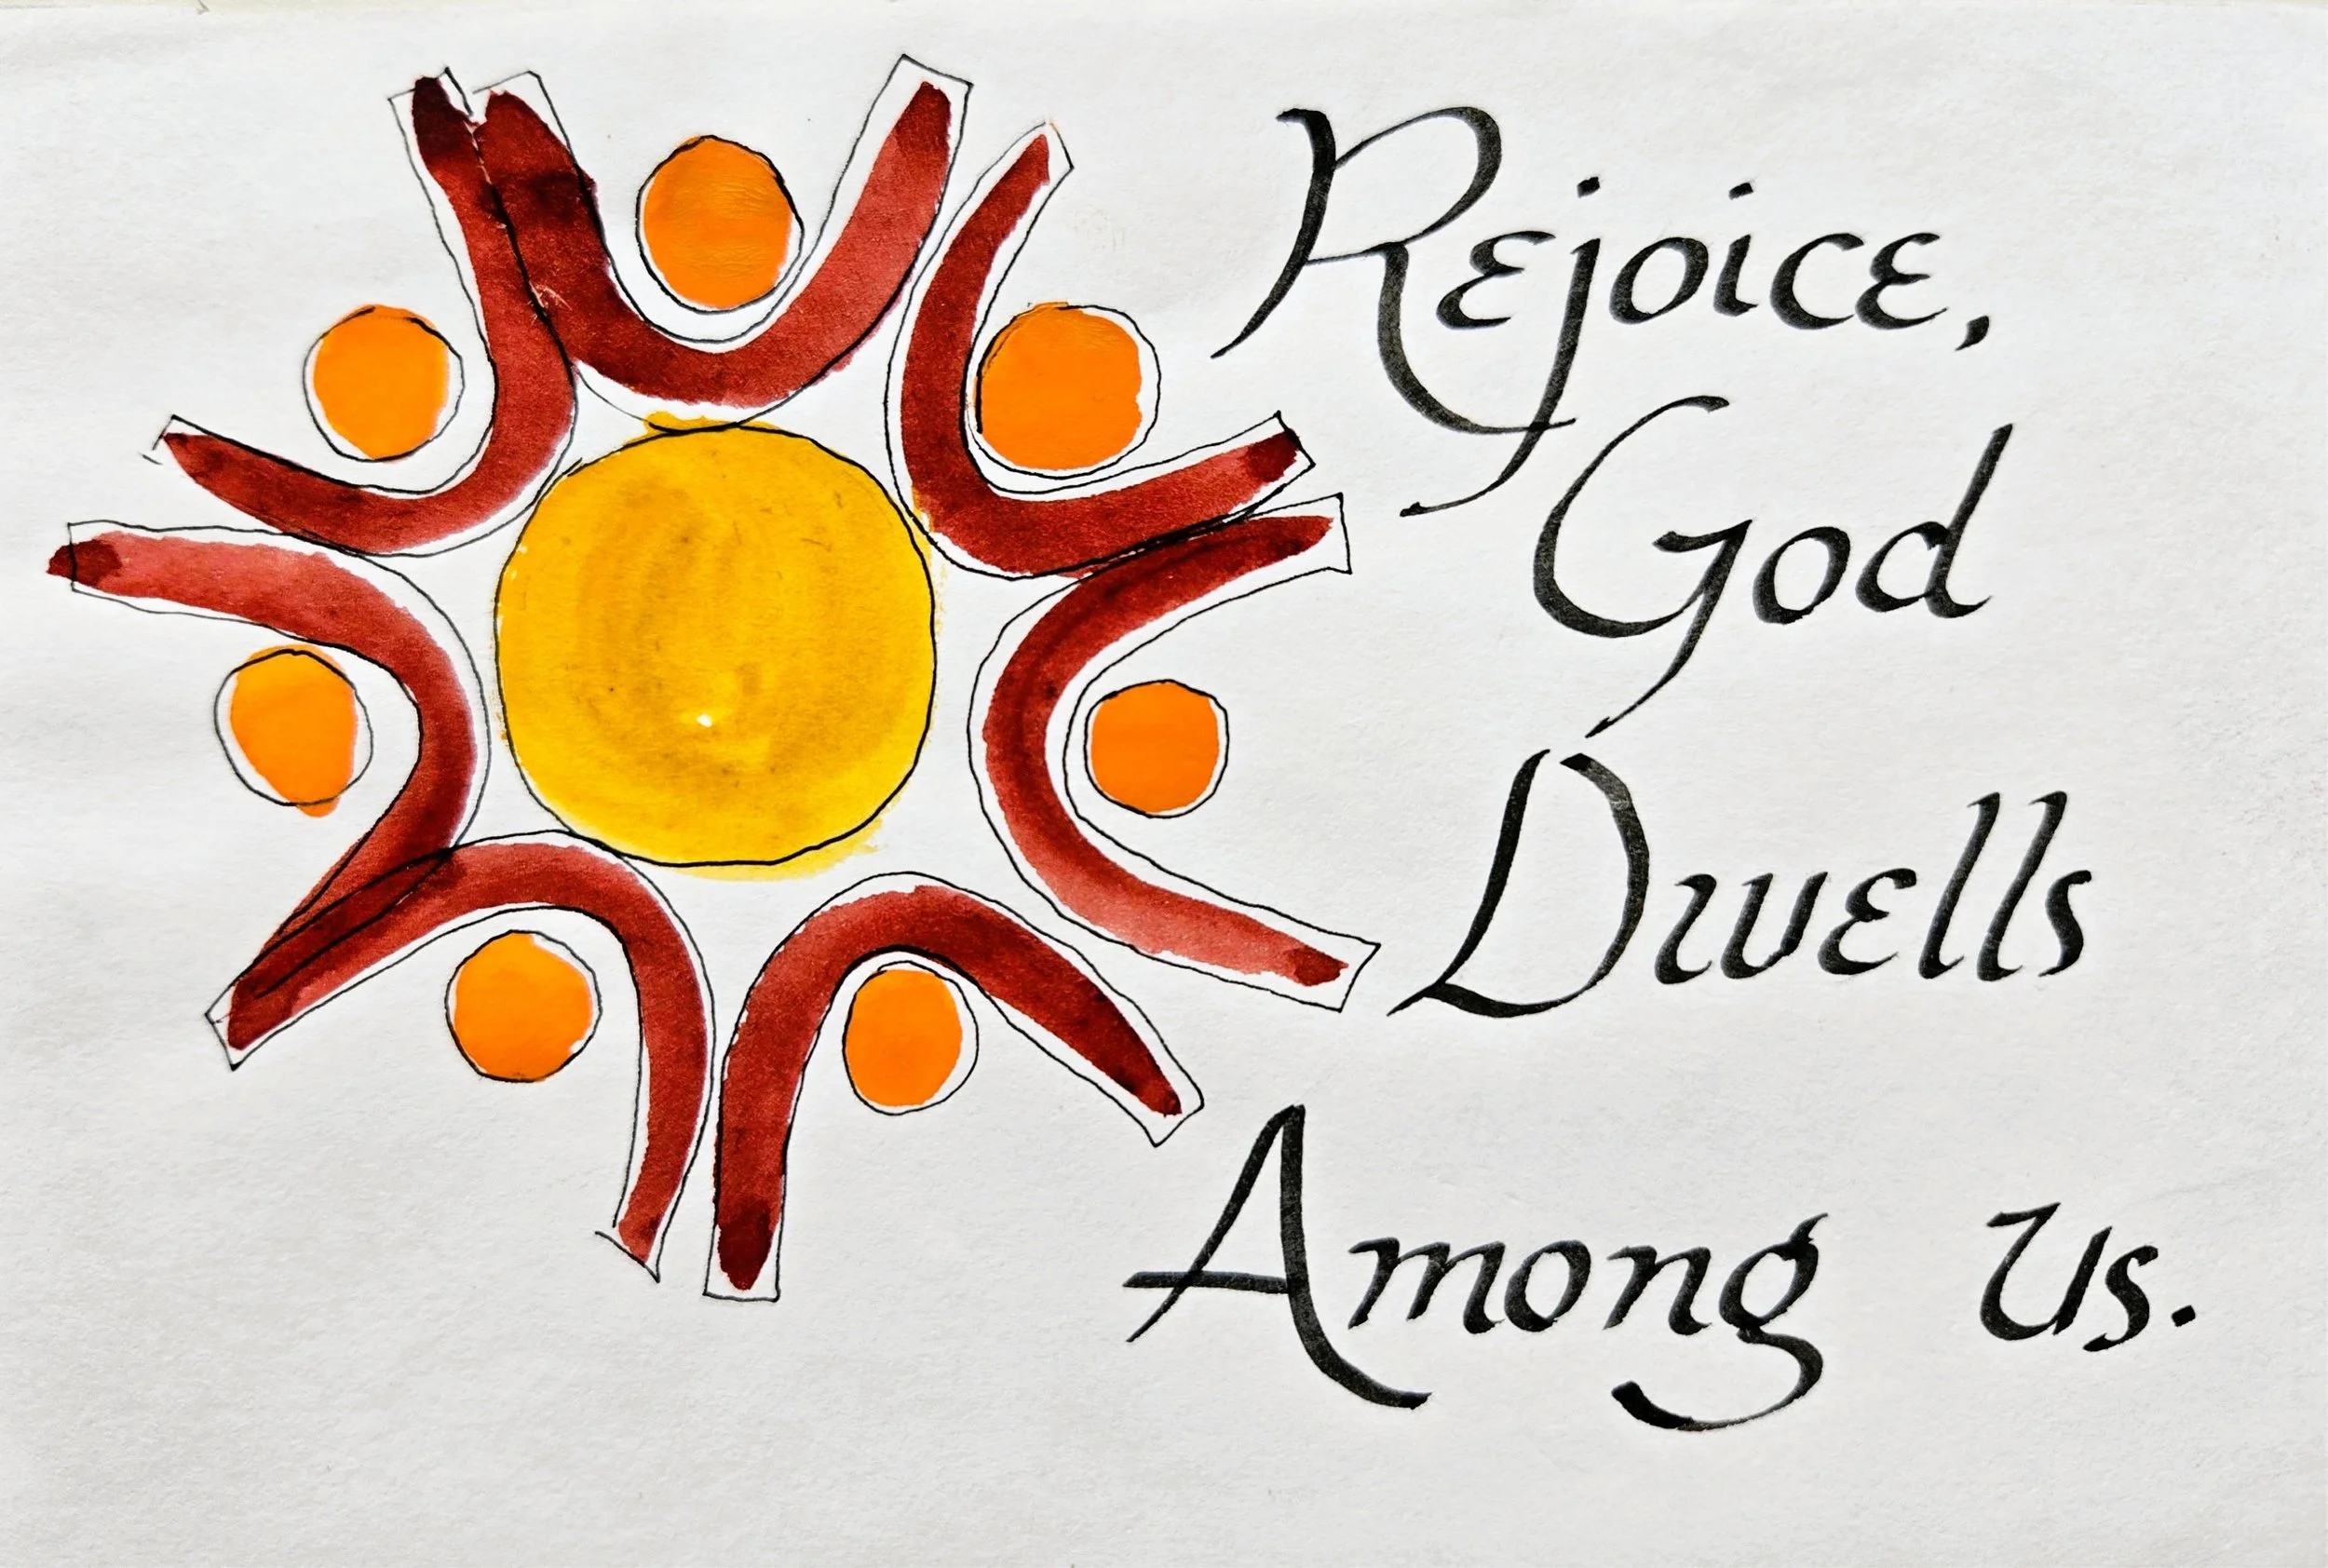 Rejoice,
God
Dwells
Among Us.